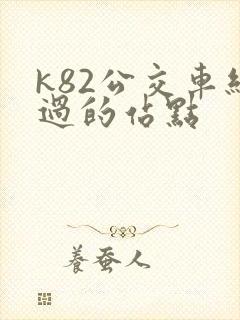 k82公交車經
過的佔點
養蚕人